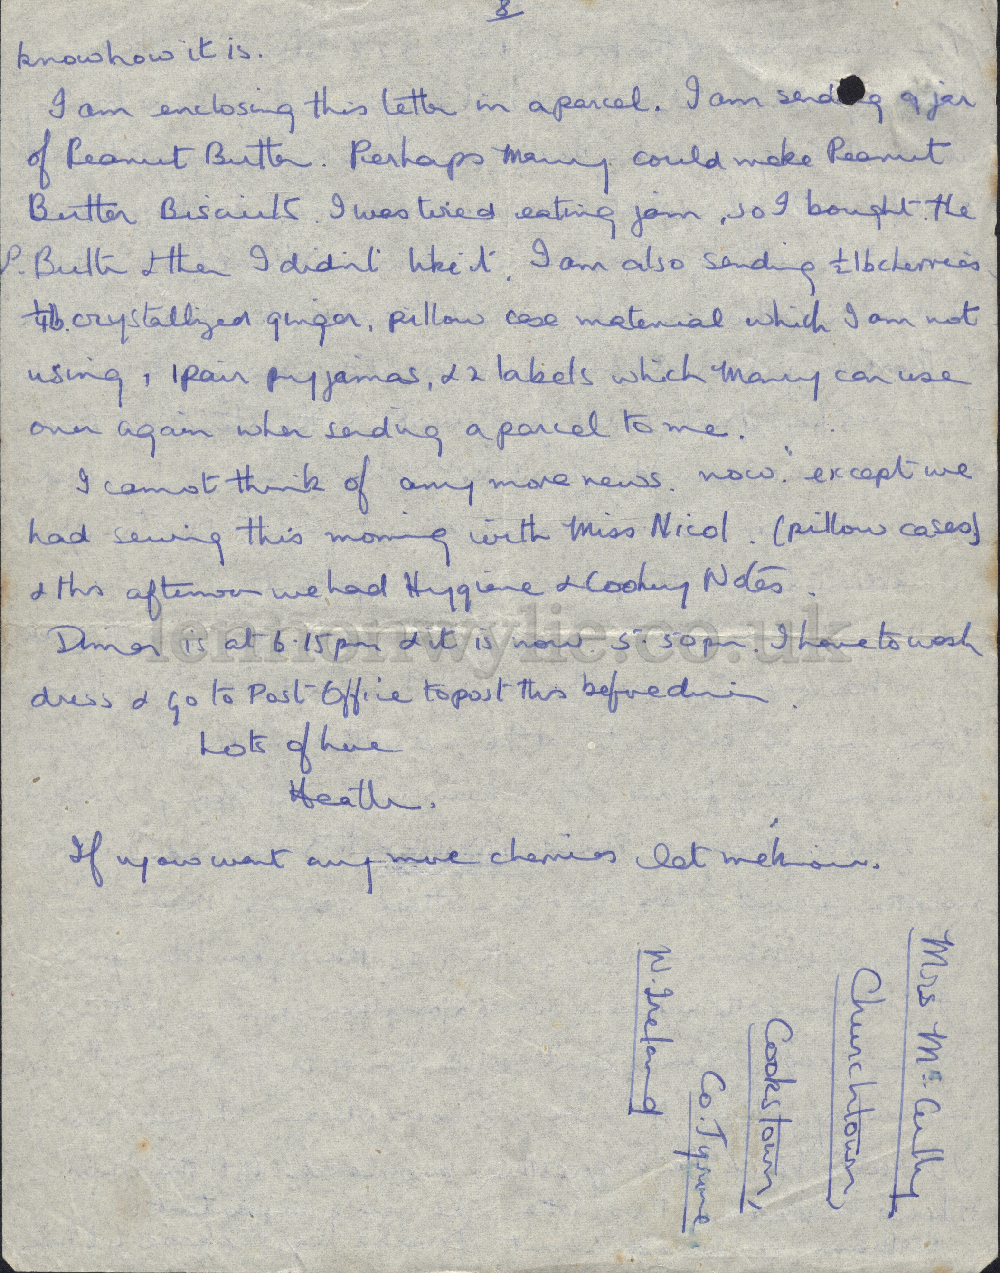 8
know how it is.
I am enclosing this letter in a parcel. I am sending a jar
of Peanut Butter. Perhaps Mary could make Peanut
Butter Biscuits. I was tired eating jam, so I bought the
P. Butter & then I didn't like it. I am also sending ½ lb cherries
¼lb. crystallized ginger, pillow case material which I am not
using, 1 pair pyjamas, & 2 labels which Mary can use
over again when sending a parcel to me.
I cannot think of any more news. now. except we
had sewing this morning with Miss Nicol. (pillow cases)
& this afternoon we had Hygiene & Cookery Notes.
Dinner is at 6.15pm & it is now 5.50pm. I have to wash
dress & go to Post Office to post this before dinner.
Lots of love
Heather.
If you want any more cherries let me know.
Mrs McCully
Churchtown
Cookstown,
Co. Tyrone
N. Ireland
lennonwylie.co.uk